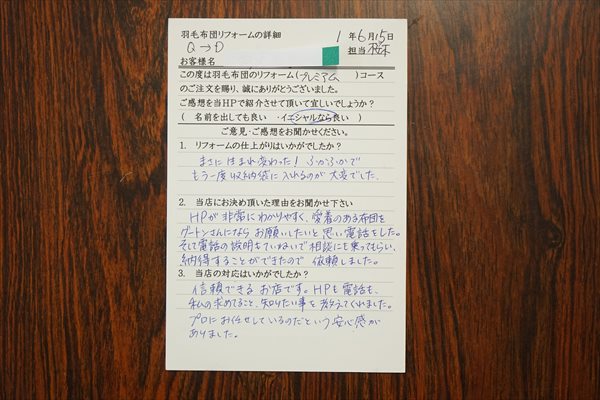 羽毛布団リフォームの詳細 1 年 6 月 15 日
Q→D 担当
お客様名
この度は羽毛布団のリフォーム(プレミアム)コース
のご注文を賜り、誠にありがとうございました。
ご感想を当HPで紹介させて頂いて宜しいでしょうか？
( 名前を出しても良い ・イニシャルなら良い )
ご意見・ご感想をお聞かせください。
1. リフォームの仕上がりはいかがでしたか？
まさに生まれ変わった！ふかふかで
もう一度収納袋に入れるのが大変でした。
2. 当店にお決め頂いた理由をお聞かせ下さい
HPが非常にわかりやすく、愛着のある布団を
グートンさんになら お願いしたいと思い電話をした。
そして電話の説明もていねいで相談にも乗ってもらい、
納得することができたので 依頼しました。
3. 当店の対応はいかがでしたか？
信頼できる お店です。HPも電話も、
私の求めてること、知りたい事を教えてくれました。
プロにお任せしているのだという安心感が
ありました。